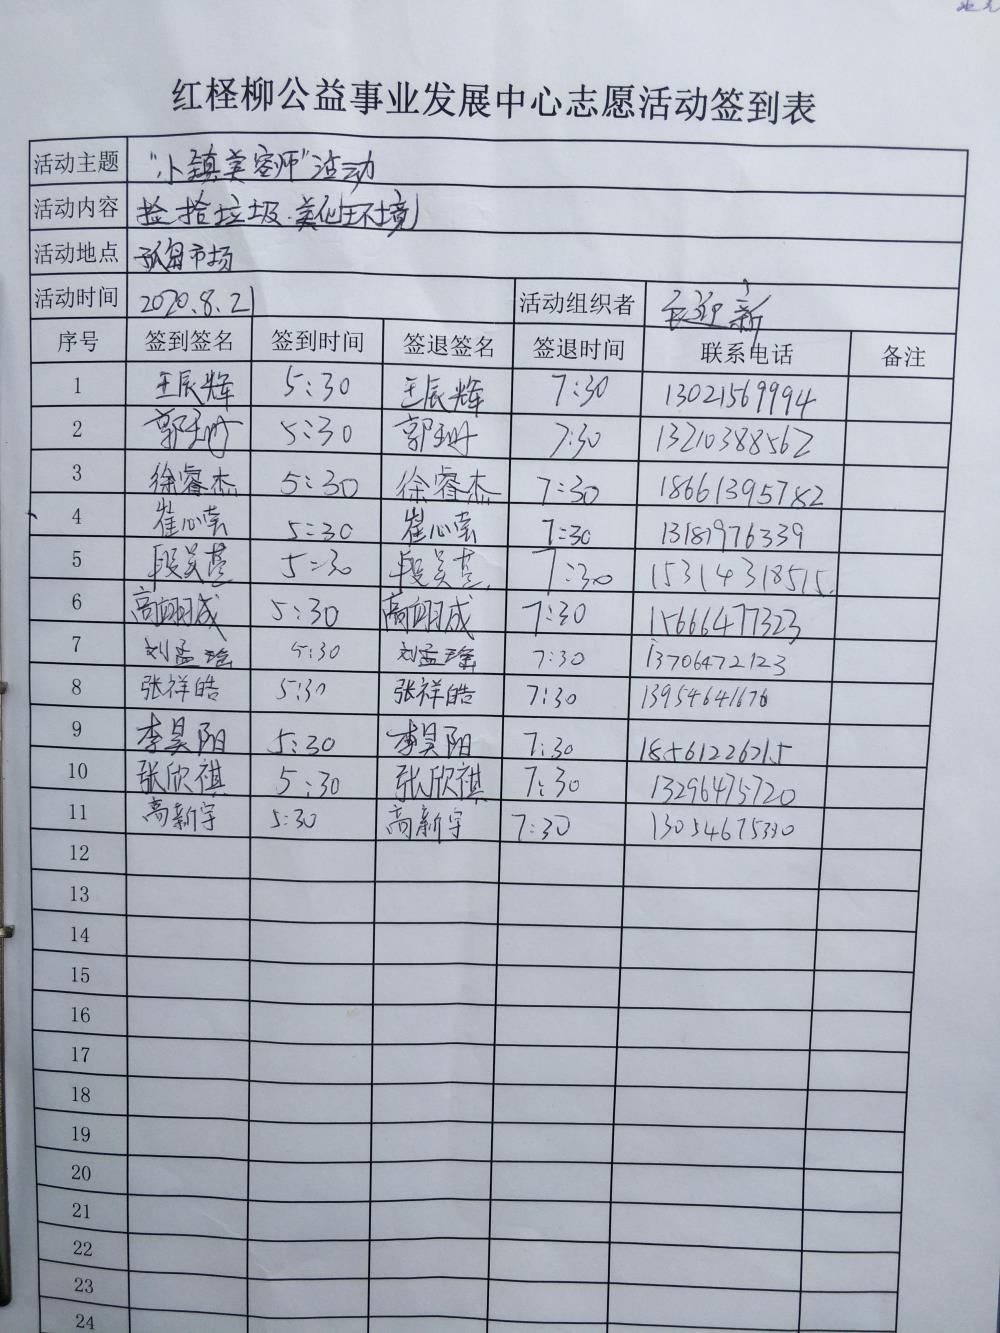 红柽柳公益事业发展中心志愿活动签到表
活动主题 "小镇美容师"活动
活动内容 捡拾垃圾.美化环境
活动地点 孤岛市场
活动时间 2020.8.21 活动组织者 迎新
序号 签到签名 签到时间 签退签名 签退时间 联系电话 备注
1 王辰辉 5:30 王辰辉 7:30 13021569994
2 郭 5:30 郭 7:30 13210388562
3 徐睿杰 5:30 徐睿杰 7:30 18661395782
4 崔心 5:30 崔心 7:30 13181976339
5 段昊 5:30 段昊 7:30 15314318515
6 高翊成 5:30 高翊成 7:30 15666477323
7 刘孟瑶 5:30 刘孟瑶 7:30 13706472123
8 张祥皓 5:30 张祥皓 7:30 13954641676
9 李昊阳 5:30 李昊阳 7:30 18561226215
10 张欣祺 5:30 张欣祺 7:30 13296475720
11 高新宇 5:30 高新宇 7:30 13054675330
12
13
14
15
16
17
18
19
20
21
22
23
24